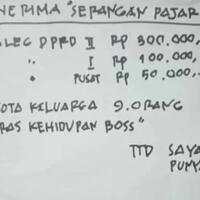 NERIMA "SERANGAN FAJAR
LEG DPRD II Rp 300.000,
" I Rp 100.000,
" PUSAT Rp 50.000,
OTA KELUARGA 9.ORANG
RAS KEHIDUPAN BOSS"
TTD SAYA
PUNY